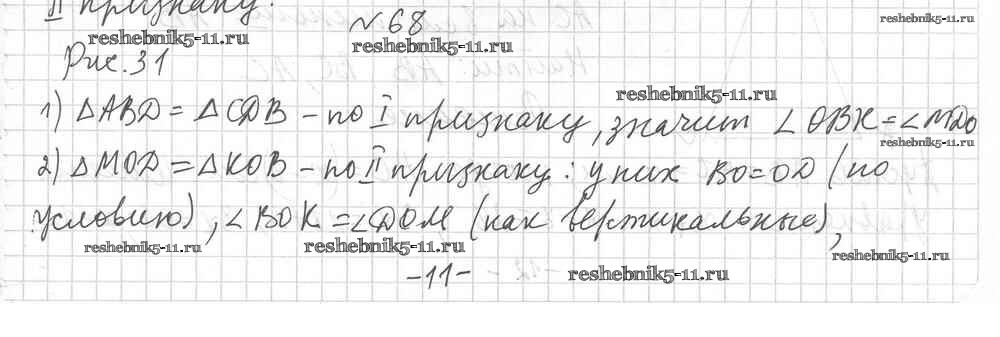 II признаку.
№68
reshebnik5-11.ru
reshebnik5-11.ru
reshebnik5-11.ru
Рис. 31
reshebnik5-11.ru
1) △ABD = △CDB – по I признаку, значит ∠OBK = ∠MDO
reshebnik5-11.ru
2) △MOD = △KOB – по II признаку: у них BO = OD (по
условию), ∠BOK = ∠DOM (как вертикальные),
reshebnik5-11.ru
reshebnik5-11.ru
reshebnik5-11.ru
-11-
reshebnik5-11.ru